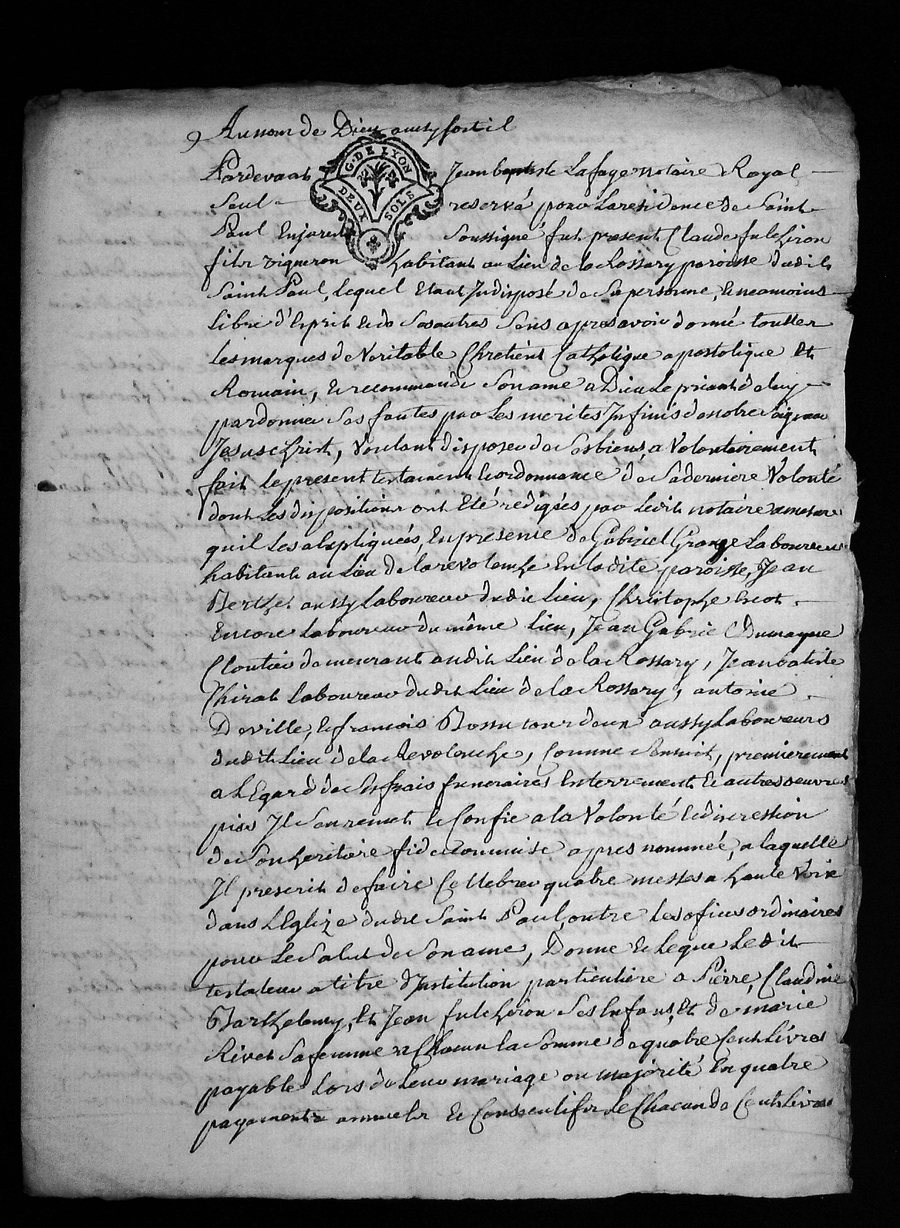 Au nom de Dieu aussy soit il
G. DE LYON
DEUX SOLS
Pardevant Jean baptiste Lafaye notaire Royal
Seul reservé pour La residence de Saint
Paul Enjarest Soussigné fut present Claude fulchiron
fils vigneron habitant au Lieu de la Rossary paroisse dudit
Saint Paul, Lequel Etant Indisposé de Sa personne, Et neamoins
Libre d'Esprit Et de Ses autres Sens apres avoir donné toutter
Les marques de Veritable Chretient Catholique apostolique Et
Romain, Et recommandé Son ame a Dieu Le priant de luy
pardonner Ses fautes par Les merites Infinis de notre Seigneur
Jesus Christ, Voulant disposer de Ses biens, a Volontairement
fait Le present testament Et ordonnance de Sa derniere Volonté
dont Les dispositions ont Eté redigées par Ledit notaire amesure
quil Les a Expliquées, En presence de Gabriel Grange Laboureur
habitant au Lieu de la revolanche En ladite paroisse, Jean
Berthet aussy Laboureur dudit Lieu, Christophe
Encore Laboureur du même Lieu, Jean Gabriel Dumayne
Cloutier demeurant audit Lieu de la Rossary, Jean batiste
Thirat Laboureur dudit Lieu de la Rossary, antoine
Deville, Et francois Bossu tour deux aussy Laboureurs
dudit Lieu de la Revolanche, Comme Sensuit, premierement
a L'Egard de Ses frais funeraires Enterrement Et autres oeuvres
pies Il Sen remet Et Confie a la Volonté Et discrestion
de Son heritiere fideicommise apres nommée, a laquelle
Il prescrit de faire Cellebrer quatre messes a haute Voix
dans L'Eglize dudit Saint Paul, outre Les ofices ordinaires
pour Le Salut de Son ame, Donne Et Legue Ledit
testateur a titre d'Institution particuliere a Pierre, Claudine
Barthelemy, Et Jean fulchiron Ses Enfans, Et de marie
Rivet Sa femme a Chacun la Somme de quatre Cent Livres
payable Lors de Leur mariage ou majorité En quatre
payements annuels Et Conssecutifs de Chacun de Cent Livres